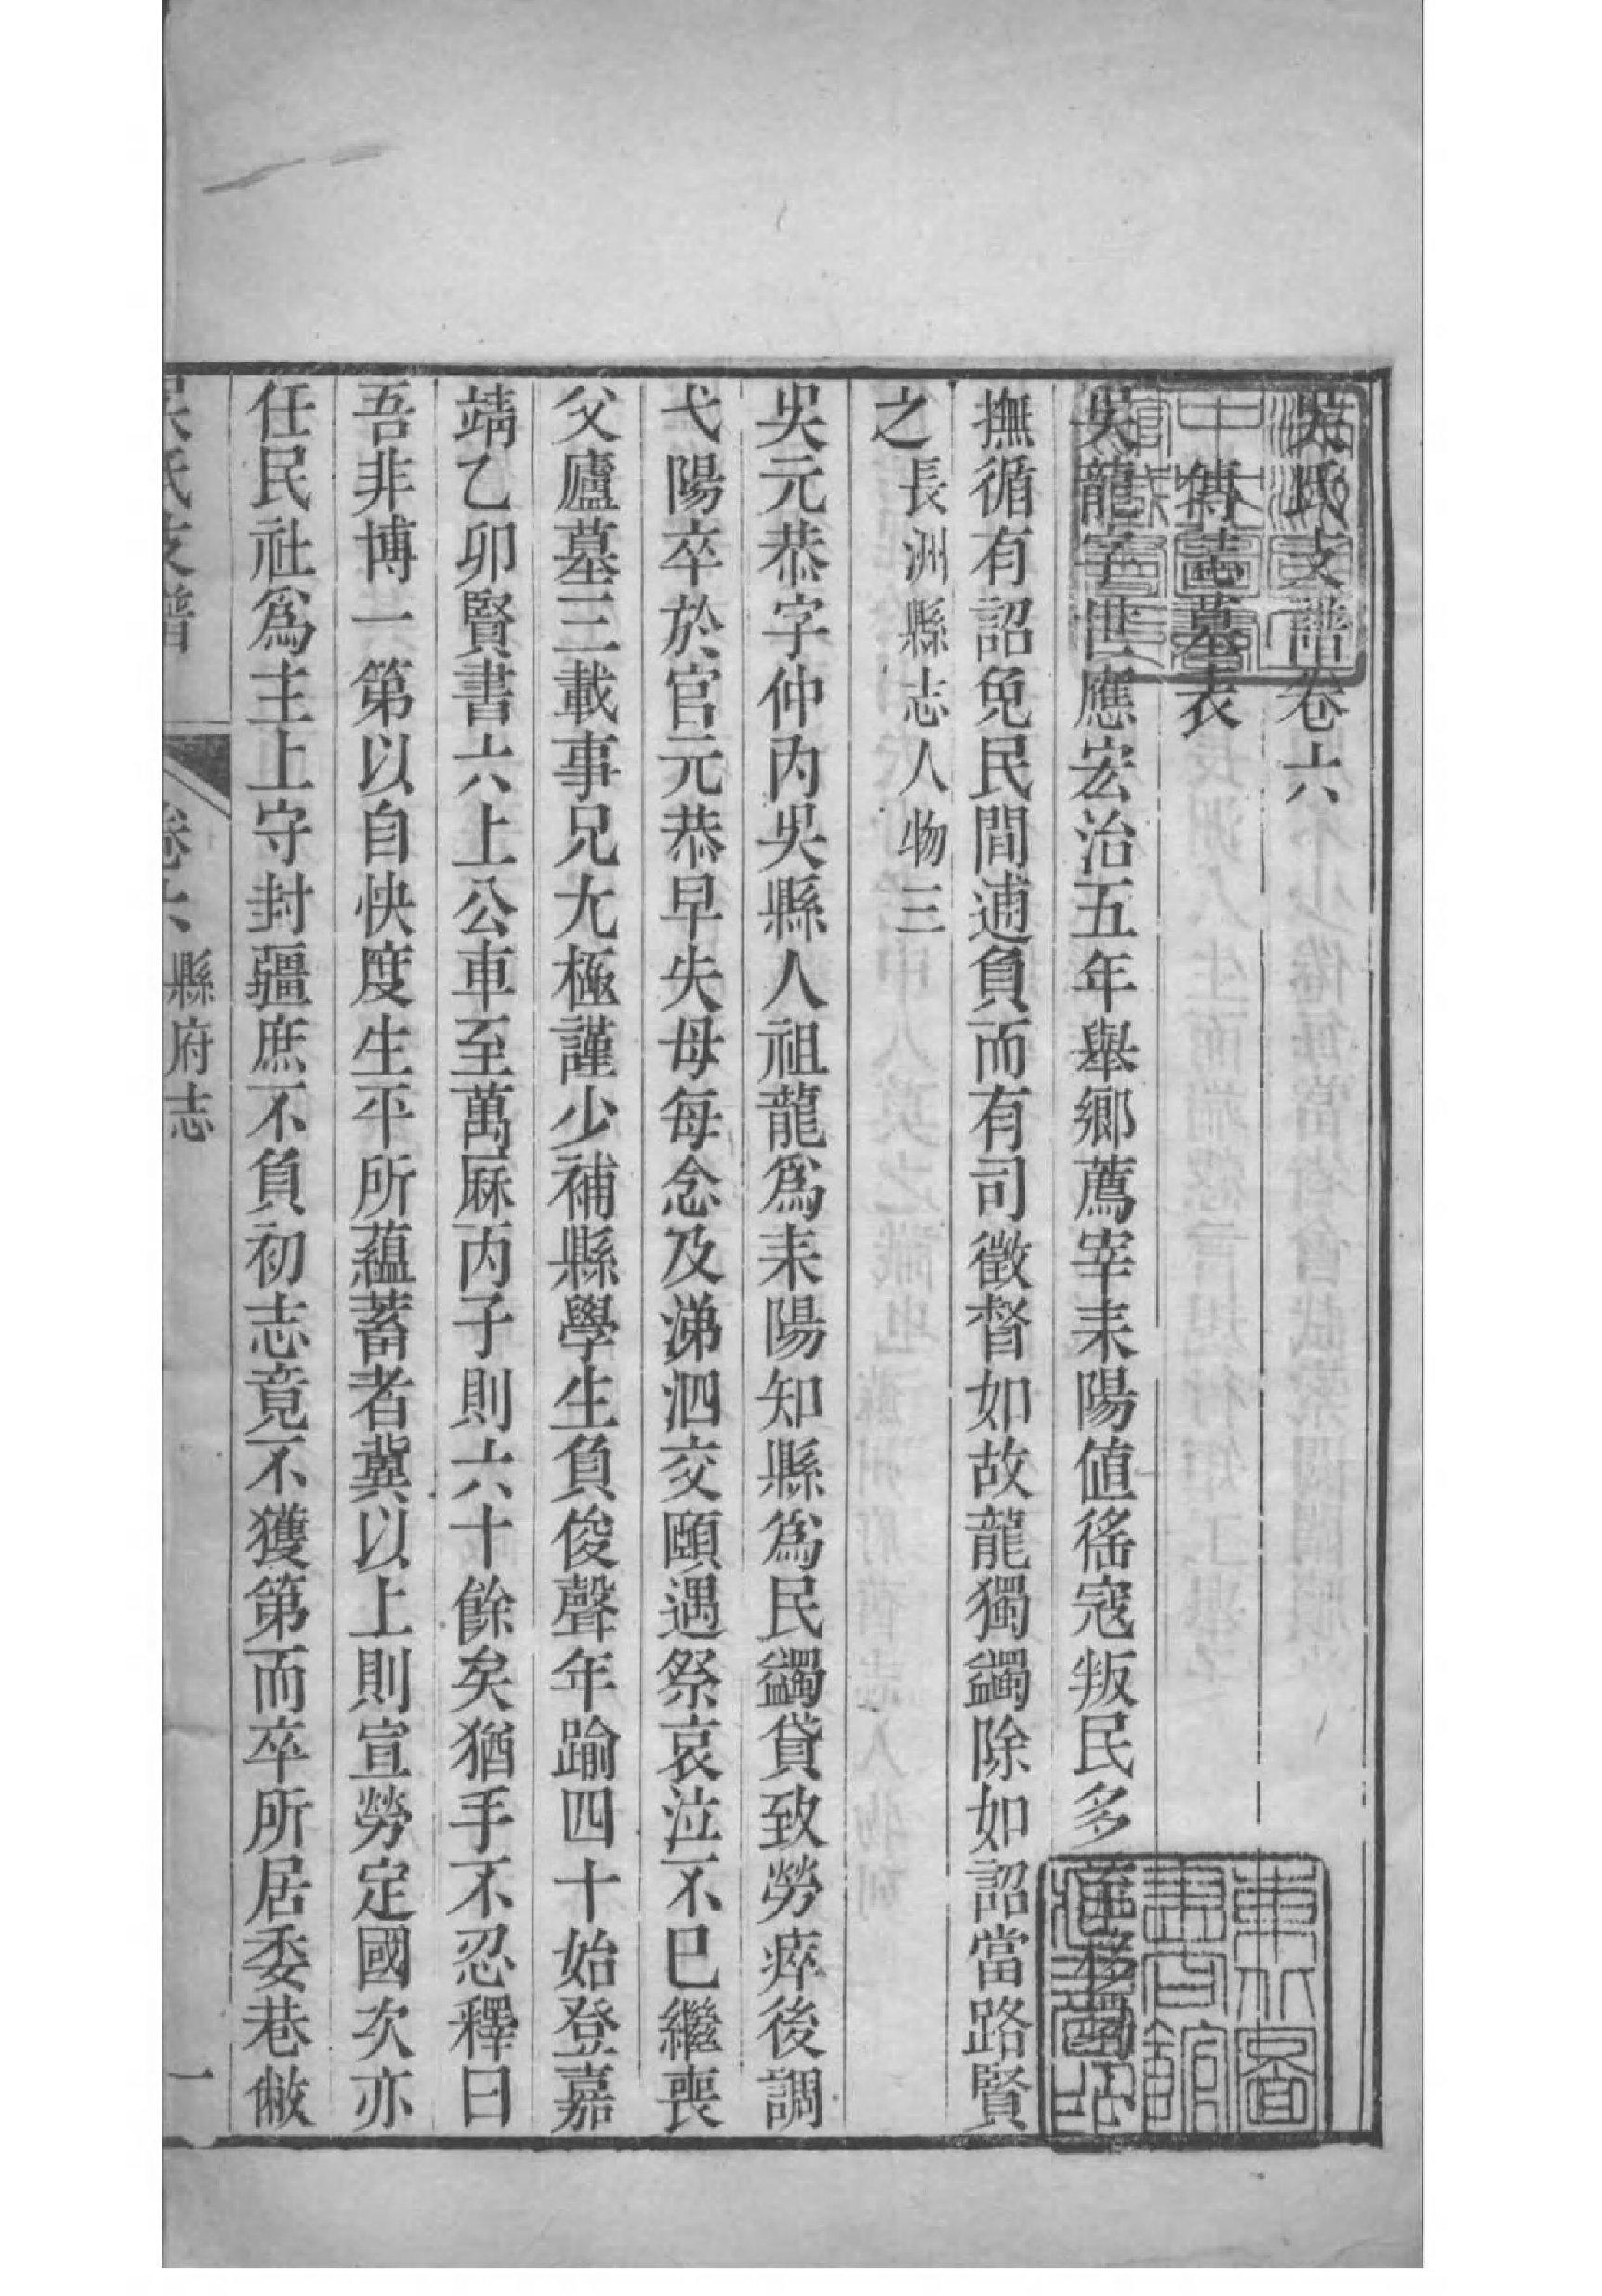 吳氏支譜卷六
傳誌墓表
吳龍字世應宏治五年舉鄉薦宰耒陽値徭寇叛民多
撫循有詔免民間逋負而有司徵督如故龍獨蠲除如詔當路賢
之長洲縣志人物三
吳元恭字仲內吳縣人祖龍爲耒陽知縣爲民蠲貸致勞瘁後調
弋陽卒於官元恭早失母每念及涕泗交頤遇祭哀泣不已繼喪
父廬墓三載事兄尤極謹少補縣學生負俊聲年踰四十始登嘉
靖乙卯賢書六上公車至萬厤丙子則六十餘矣猶手不忍釋曰
吾非博一第以自快度生平所蘊蓄者冀以上則宣勞定國次亦
任民社爲主上守封疆庶不負初志竟不獲第而卒所居委巷敝
吳氏支譜 卷六 縣府志 一